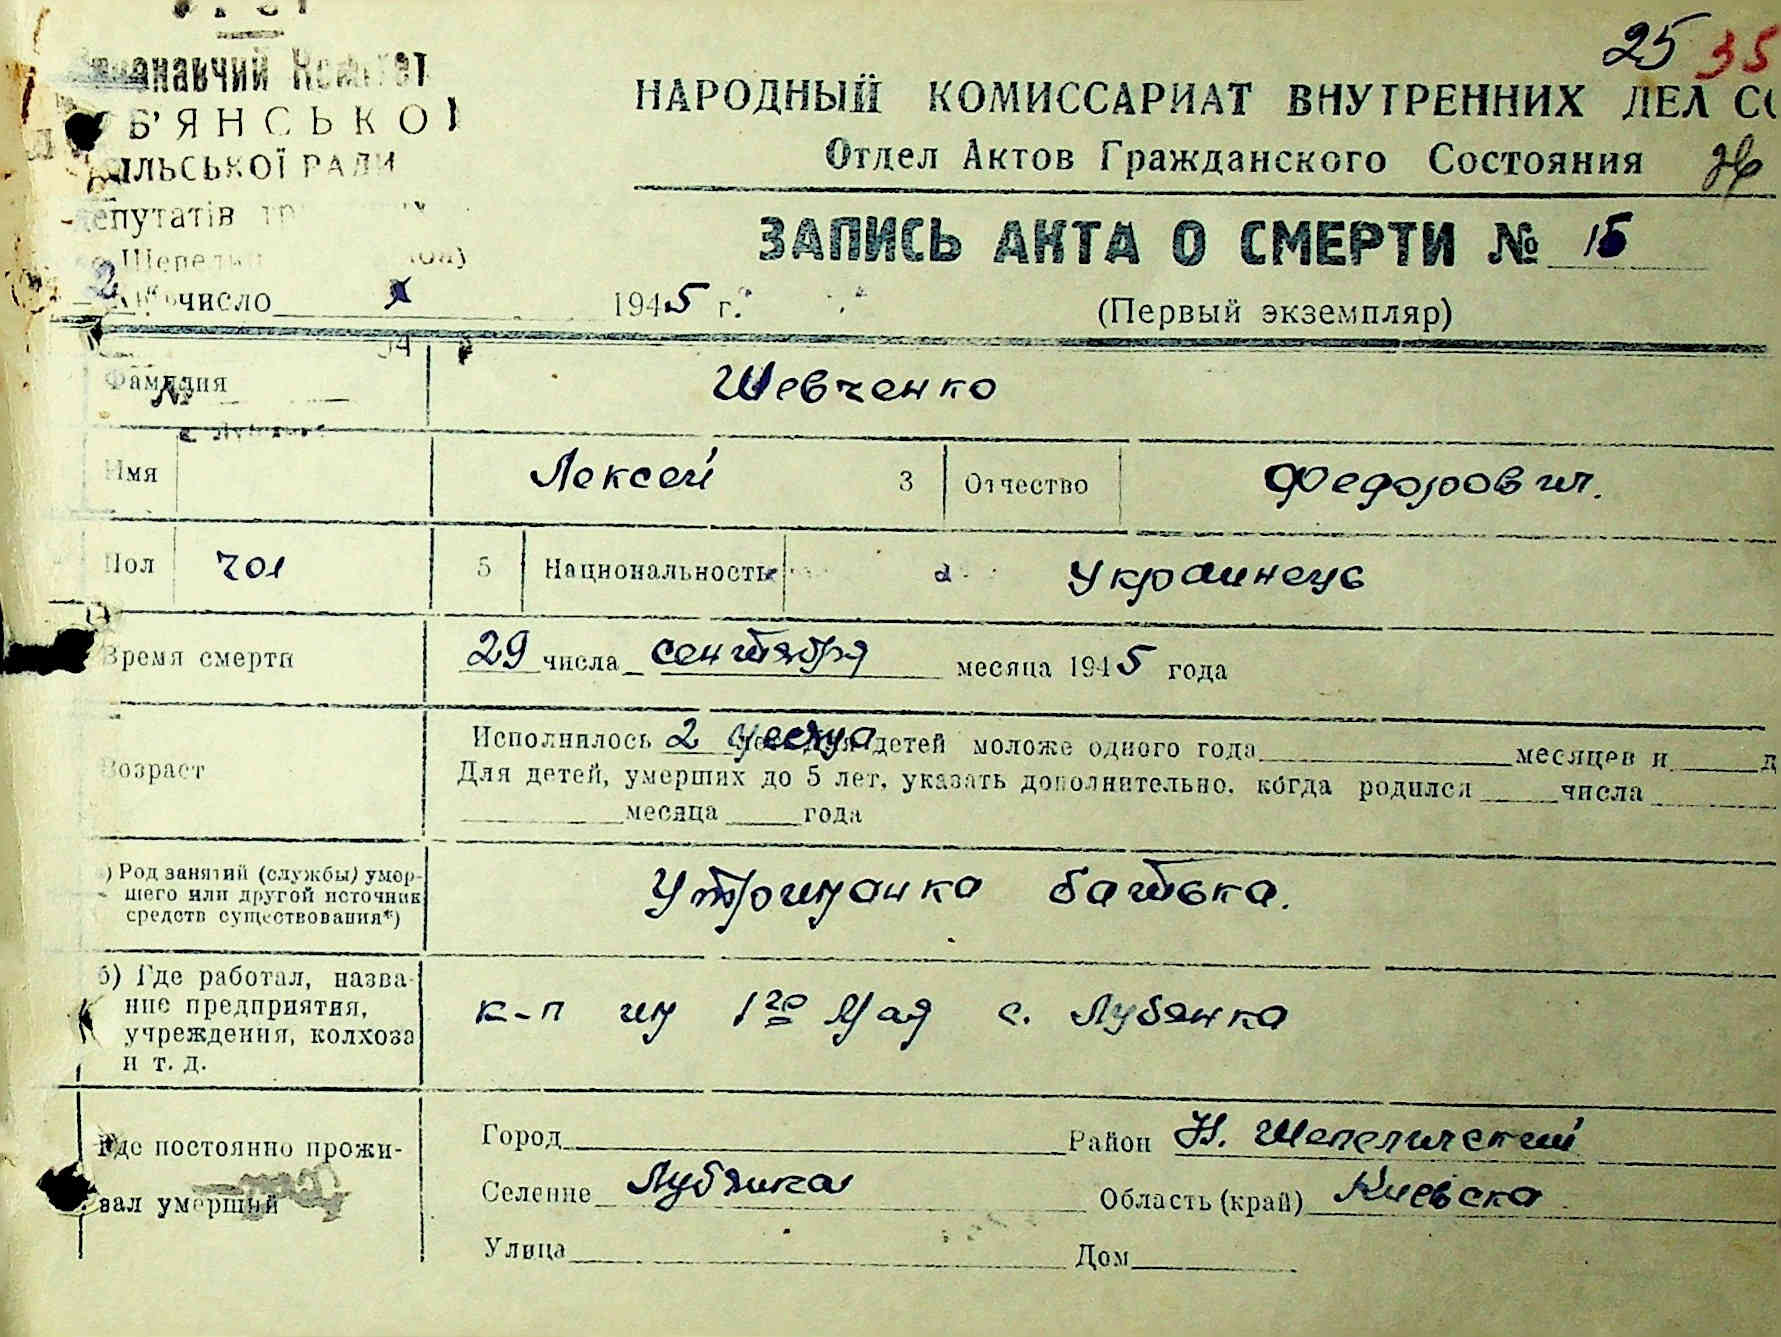 25 35
Комітет
НАРОДНЫЙ КОМИССАРИАТ ВНУТРЕННИХ ДЕЛ
Отдел Актов Гражданского Состояния
РАДИ
ЗАПИСЬ АКТА О СМЕРТИ № 15
число X 1945 г.
(Первый экземпляр)
Фамилия Шевченко
Имя Лексей 3 Отчество Федорович.
Пол чол 5 Национальность Украинець
Время смерти 29 числа сентября месяца 1945 года
Возраст
Исполнилось 2 месяца детей моложе одного года месяцев и
Для детей, умерших до 5 лет, указать дополнительно, когда родился числа
месяца года
) Род занятий (службы) умер-
шего или другой источник
средств существования*)
Утриманка батька.
б) Где работал, назва-
ние предприятия,
учреждения, колхоза
и т. д.
к-п им 1го Мая с. Лубянка
Где постоянно прожи-
вал умерший
Город Район Н. Шепеличский
Селение Лубянка Область (край) Киевска
Улица Дом